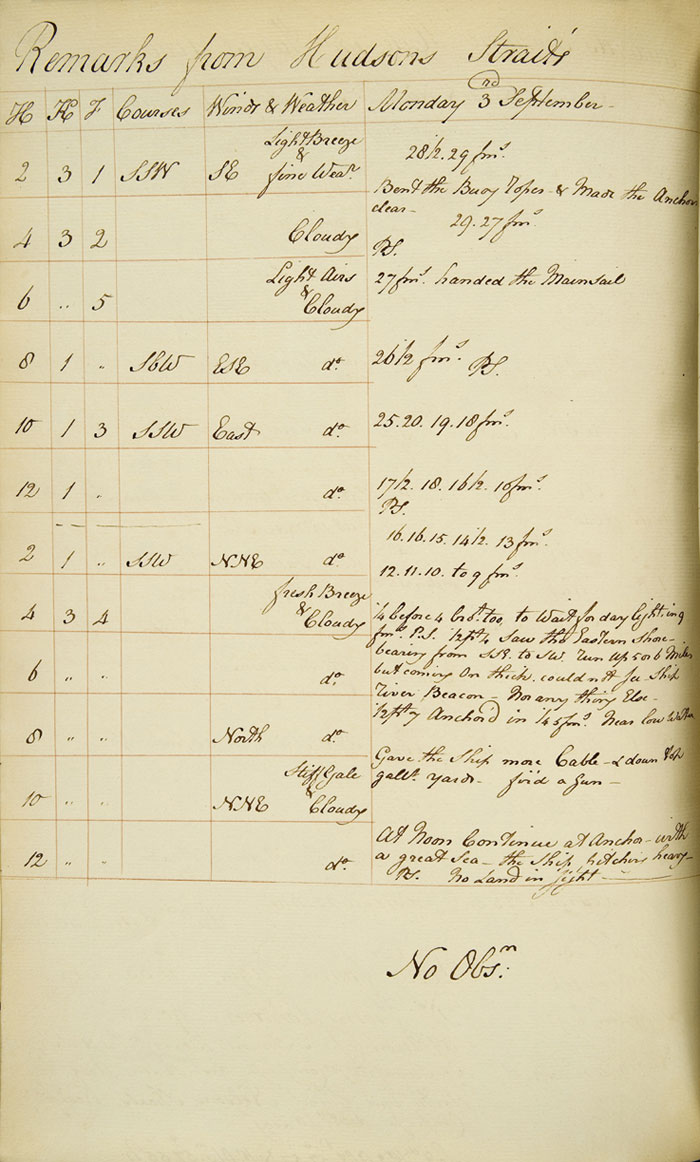 Remarks from Hudsons Straits
H K F Courses Winds & Weather Monday 3rd September
Light Breeze
&
2 3 1 SSW SE fine Wear. 28 1/2. 29 fms.
Bent the Buoy Ropes & Made the Anchors
clear - 29. 27 fms.
4 3 2 Cloudy PS.
Light Airs 27 fms. handed the Mainsail
&
6 " 5 Cloudy
8 1 " SbW ESE do. 26 1/2 fms. PS.
10 1 3 SSW East do. 25. 20. 19. 18 fms.
12 1 " do. 17 1/2. 18. 16 1/2. 16 fms.
PS.
16. 16. 15. 14 1/2. 13 fms.
2 1 " SSW NNE do. 12. 11. 10. to 9 fms.
fresh Breeze
&
4 3 4 Cloudy 1/4 before 4 brot. too, to Wait for day light, in 9
fms. PS. 1/2 pt 4 Saw the Eastern Shore -
bearing from SSE to SW. run up 5 or 6 Miles
6 " " do. but coming On thick. couldn't see Ship
River Beacon - Nor any thing Else -
1/2 pt 7 Anchord in 1/4 5 fms. Near low Water
8 " " North do.
Stiff Gale Gave the Ship more Cable - & down
& gallt. yards - fir'd a Gun -
10 " " NNE Cloudy
At Noon Continue at Anchor - with
a great Sea - the Ship pitching heavy -
12 " " do. PS. No Land in sight -
No Obsn: